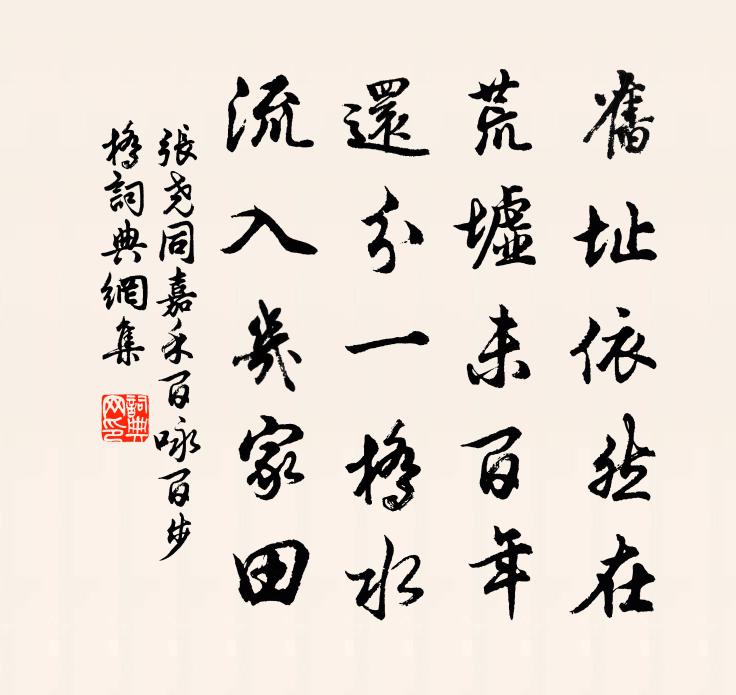 舊址依然在
荒墟未百年
還分一橋水
流入幾家田
張尧同嘉禾百咏百步
橋詞典網集
詞典
网印